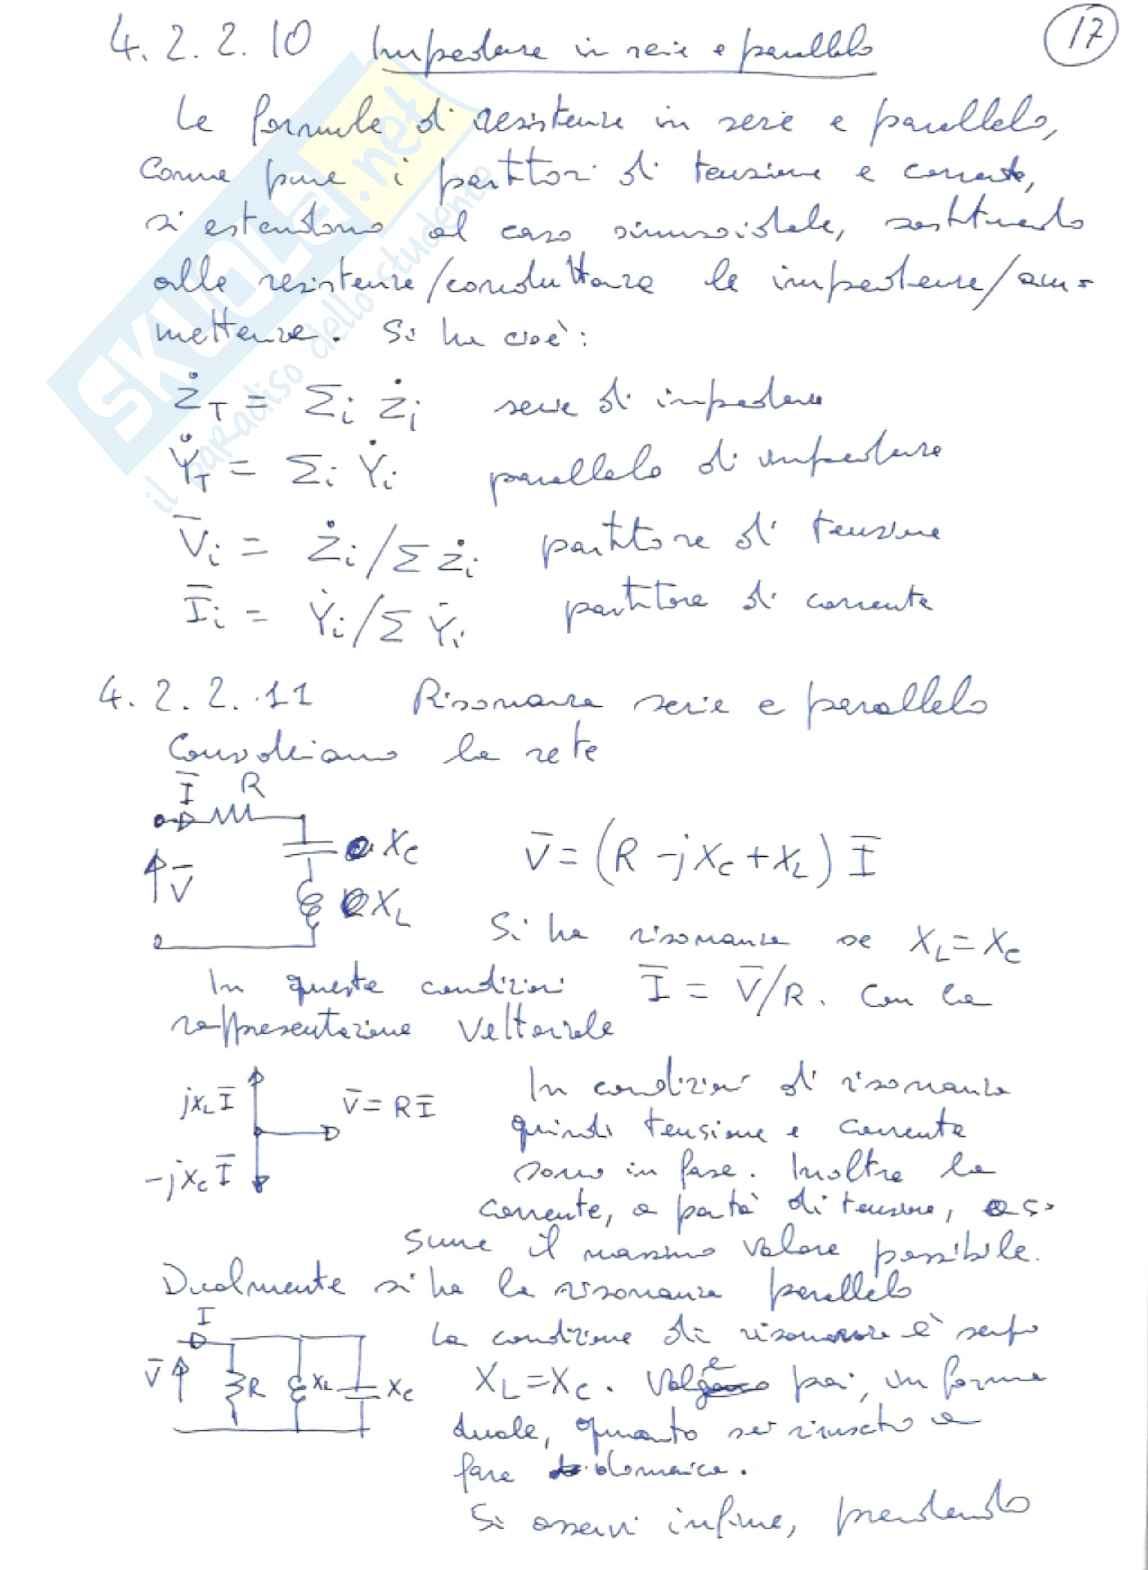 4.2.2.10 Impedenze in serie e parallelo
17
Le formule di resistenze in serie e parallelo,
come pure i partitori di tensione e corrente,
si estendono al caso sinusoidale, sostituendo
alle resistenze/conduttanze le impedenze/am=
mettenze. Si ha cioè:
Ż_T = Σ_i Ż_i serie di impedenze
Ẏ_T = Σ_i Ẏ_i parallelo di impedenze
V̄_i = Ż_i/Σ Ż_i partitore di tensione
Ī_i = Ẏ_i/Σ Ẏ_i partitore di corrente
4.2.2.11 Risonanza serie e parallelo
Consideriamo la rete
Ī R
X_C
V̄
X_L
V̄ = (R -jX_C + X_L) Ī
Si ha risonanza se X_L = X_C
In queste condizioni Ī = V̄/R. Con la
rappresentazione vettoriale
jX_L Ī
V̄ = RĪ
-jX_C Ī
In condizioni di risonanza
quindi tensione e corrente
sono in fase. Inoltre la
corrente, a parità di tensione, as-
sume il massimo valore possibile.
Dualmente si ha la risonanza parallelo
I
V̄ R X_L X_C
La condizione di risonanza è sempre
X_L = X_C. Vale poi, in forma
duale, quanto
fare
Si osservi infine, prendendo
SKUOLA.net
il paradiso dello studente